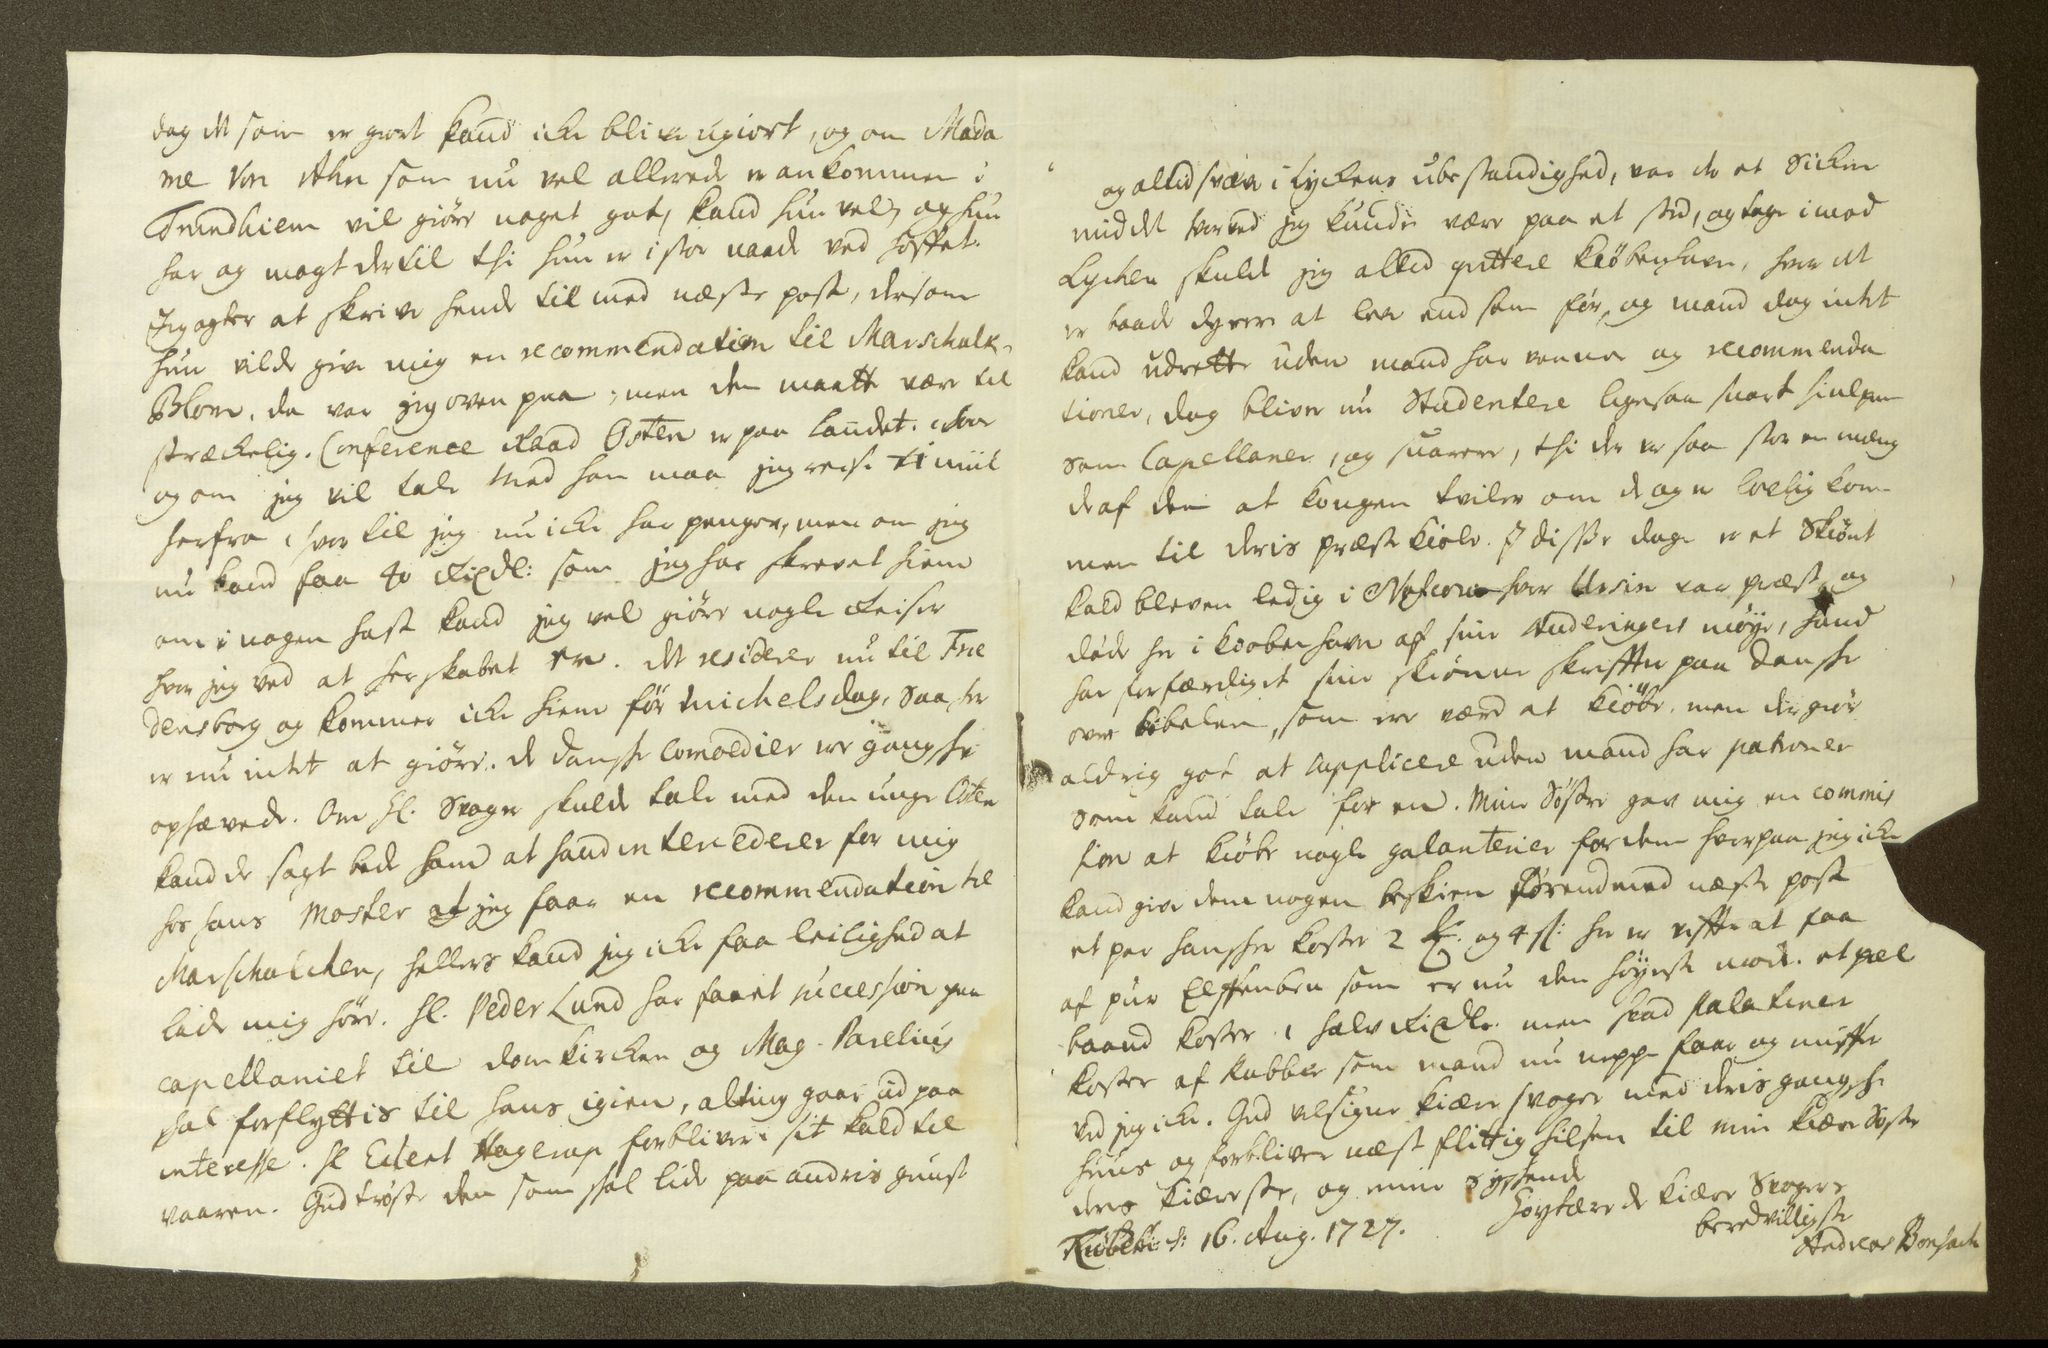 dog det som er giort kand icke blive ugiort, og om Mada
me Von Ahn som nu vel allerede er ankommen i
Trundhiem vil giöre noget got, kand hun vel, og hun
har og magt dertil thi hun er i stor naade ved hoffet.
Jeg agter at skrive hende til med næste post, dersom
hun vilde give mig en recommendation til Marschalk
Blom, da var jeg oven paa, men den maatte være til
strækelig. Conference Raad Osten er paa landet.
og om jeg vil tale med ham maa jeg reise 11 miil
herfra, hvor til jeg nu icke har penger, men om jeg
nu kand faa 40 Rixdl: som jeg har skrevet hiem
om i nogen hast kand jeg vel giöre nogle Reiser
hvor jeg ved at herskabet er. det resider nu til Frie
densborg og kommer icke hiem för Michelsdag, saa her
er nu intet at giöre. de danske Comoedier ere gangske
ophævede. Om Hl. Svoger skulde tale med den unge Osten
kand de sagt bede ham at hand intercederer for mig
hos hans Moster at jeg faar en recommendation til
Marschalcken, hellers kand jeg icke faa leilighed at
lade mig höre. Hl. Peder Lund har faaet succession paa
capellaniet til domkircken og Mag. Parelius
skal forflyttis til hans igien, alting gaar ud paa
interesse. Hl Eilert Hagerup forbliver i sit kald til
vaaren. Gud tröste den som skal lide paa andris gunst
og altid svæve i Lyckens ubestandighed, var der et Sicker
middel hvorved jeg kunde være paa et sted, og tage imod
Lycken skulde jeg altid qvittere Kiöbenhavn, hvor det
er baade dyrere at leve end som för, og mand dog intet
kand udrette uden mand har venner og recommenda
tioner, dog bliver nu Studentere ligesaa snart hiulpen
som Capellaner, og snarere, thi der er saa stor en mengde
deraf den at kongen tviler om de og er lovlig kom
men til deris præste kiole. I disse dage er et Skiönt
kald bleven ledig i hvor Ursin var præst, og
döde her i Kiöbenhavn af sine Studeringers möye, hand
har forfærdiget sine skiönne skriffter paa Danske
over bibelen, som ere værd at kiöbe. men det giör
aldrig got at supplicere uden mand har patroner
som kand tale for en. Mine Söstre gav mig en commis
sion at kiöbe nogle galanterier for dem hvorpaa jeg icke
kand give dem nogen beskeen förend med næste post
et par hansker koster 2 og 4 sl: her er viffte at faa
af pur Elffenben som er nu den höyeste mode. et perle
baand koster 1 halv Rixdlr. men hvad Palatiner
koster af Kabber som mand nu neppe faar og muffer
ved jeg icke. Gud velsigne kiære Svoger med deris gangske
huus og forbliver næst flittig hilsen til min kiære Söster
deris kiæreste, og mine Södskende
Höytærede kiære Svogers
beredvilligste
Kiöbh: d: 16. Aug. 1727.
Andreas Bonsach